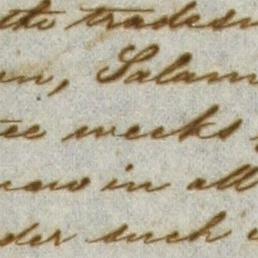 the tradesm
on, Salam
tee weeks
now in all
der such